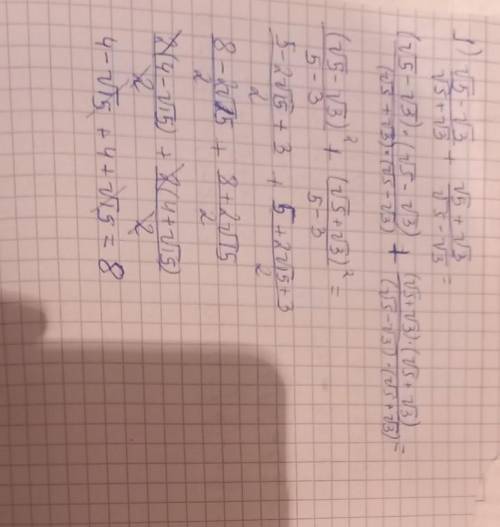 1) (√5-√3)/(√5+√3) + (√5+√3)/(√5-√3) =
((√5-√3)·(√5-√3))/((√5+√3)·(√5-√3)) + ((√5+√3)·(√5+√3))/((√5-√3)·(√5+√3)) =
(√5-√3)²/(5-3) + (√5+√3)²/(5-3) =
(5-2√15+3)/2 + (5+2√15+3)/2
(8-2√15)/2 + (8+2√15)/2
2(4-√15)/2 + 2(4+√15)/2
4-√15+4+√15=8